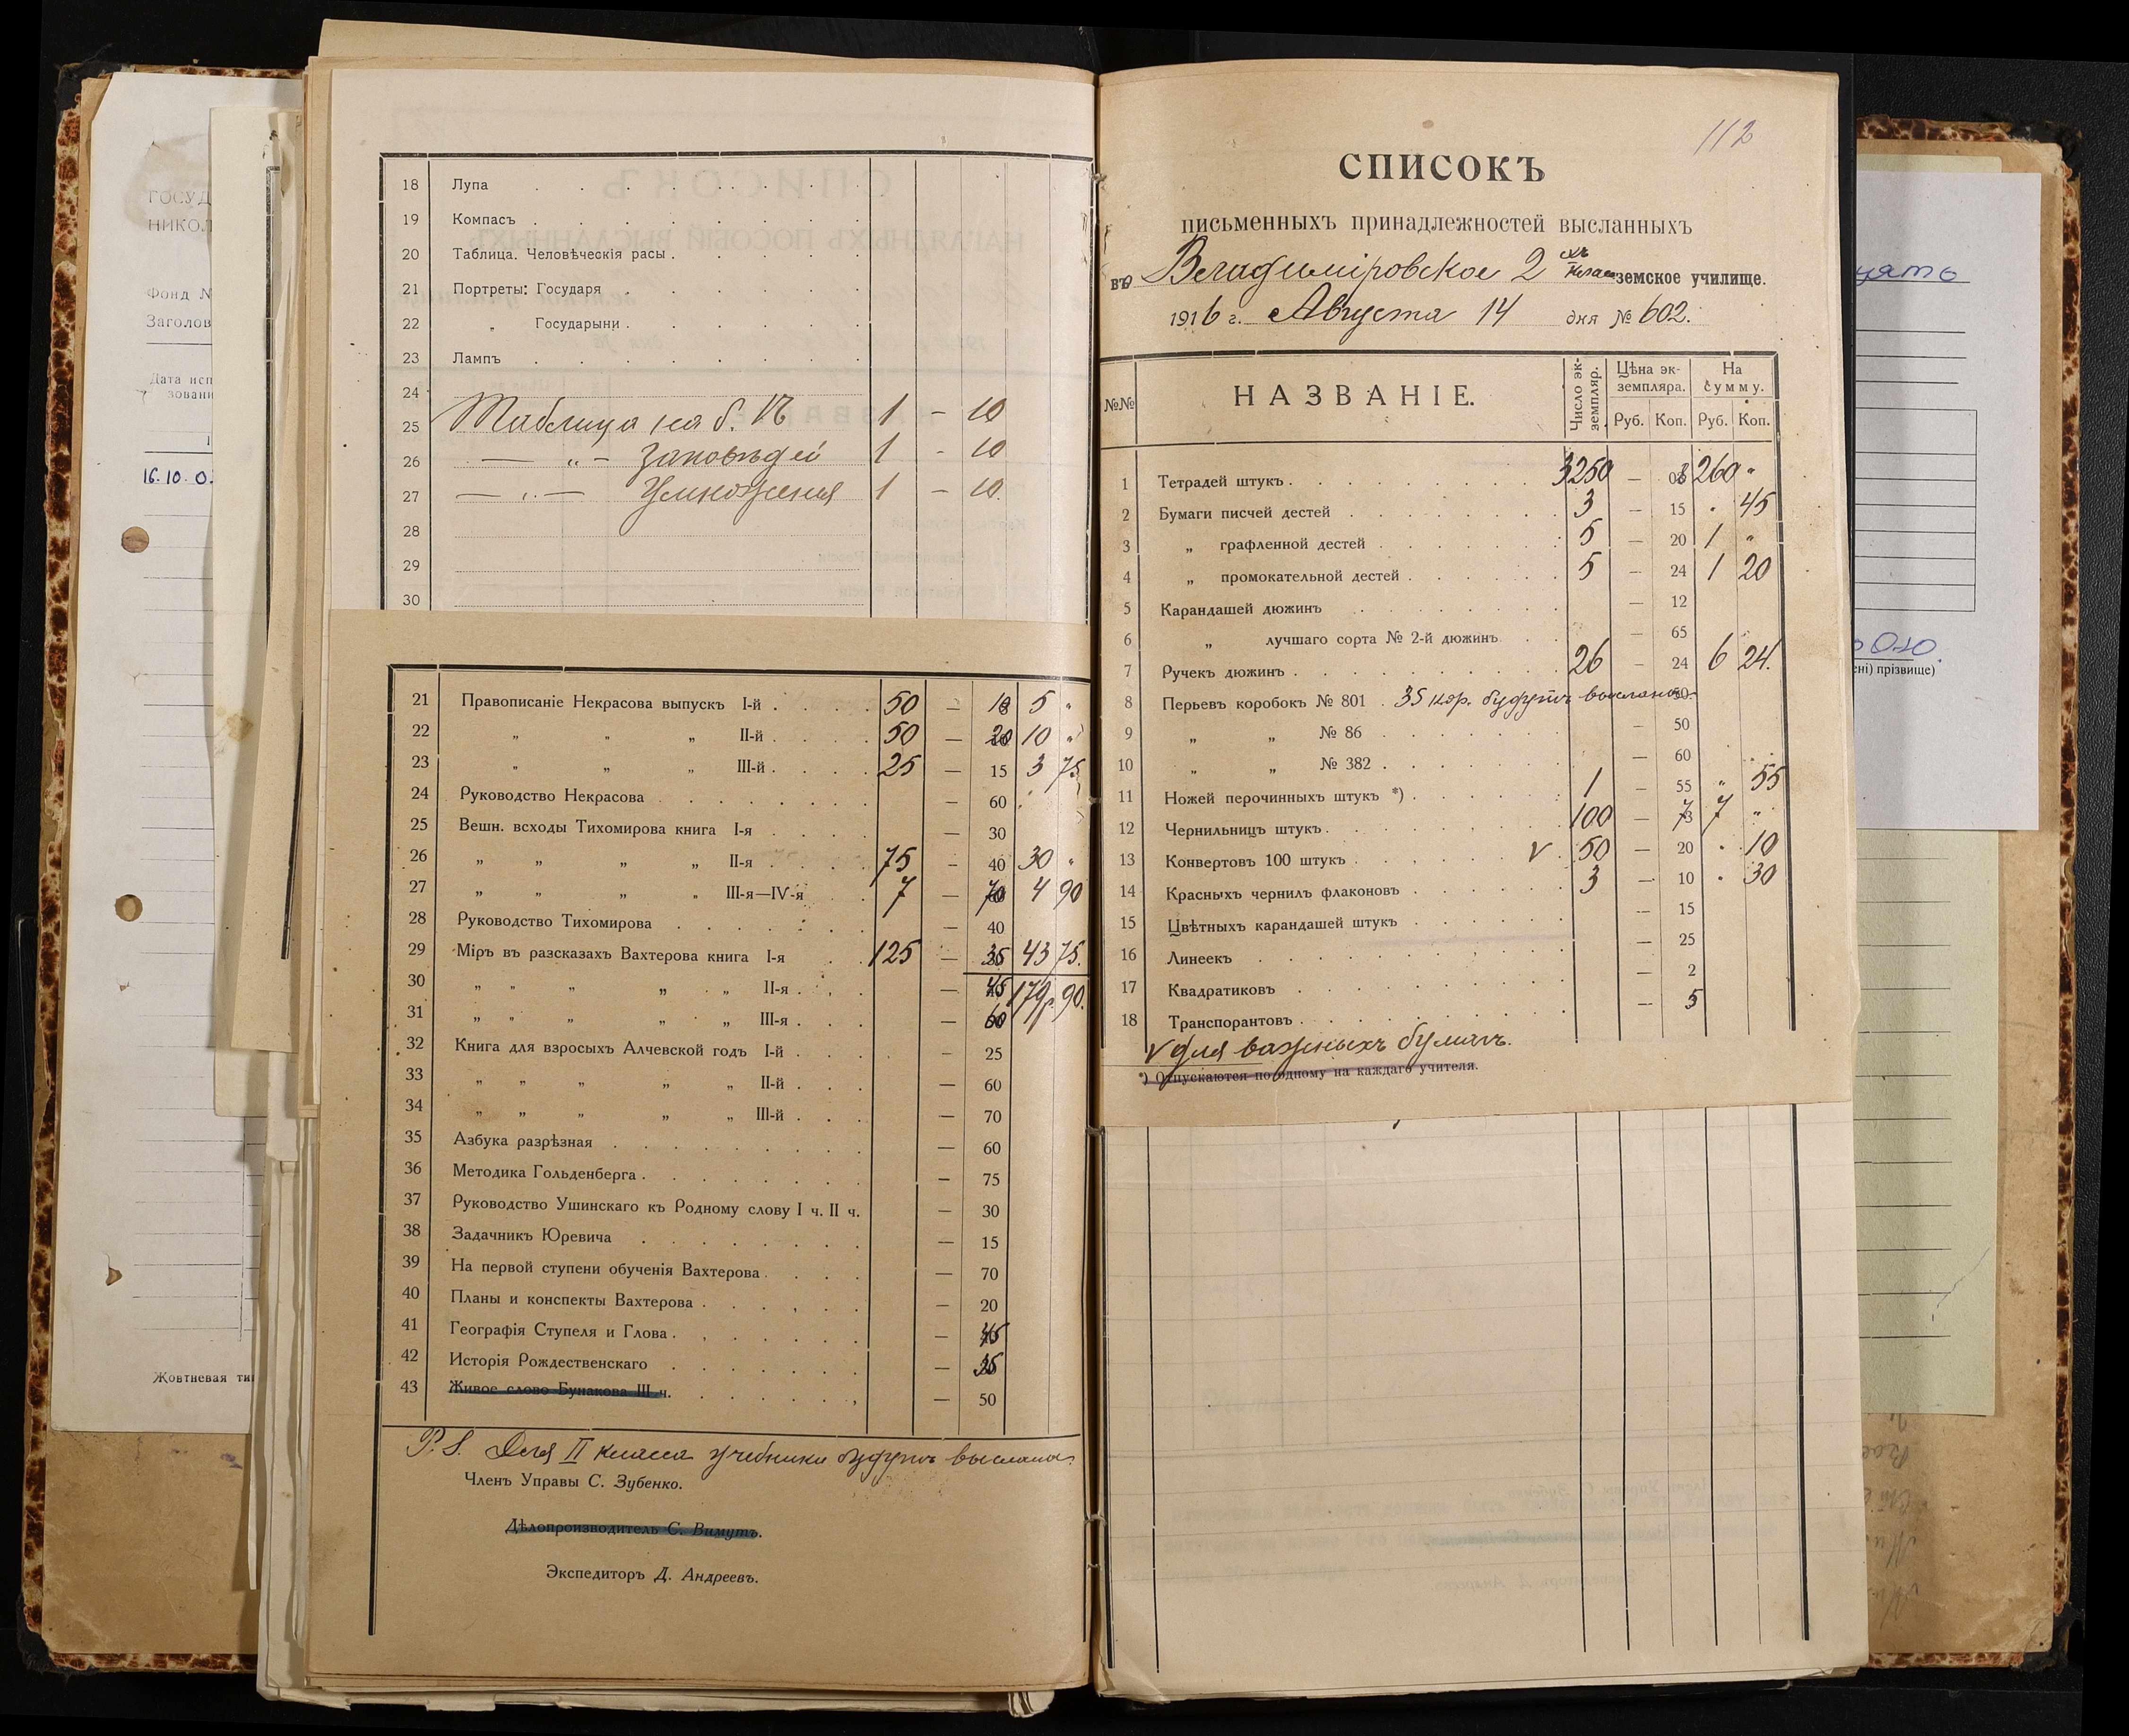 ГОСУД
НИКОЛ
Фонд №
Заголов
Дата исп
зовани
16.10.0
Жовтневая ти
18 Лупа
19 Компасъ
20 Таблица. Человѣческія расы
21 Портреты: Государя
22 „ Государыни
23 Лампъ
24
25 Таблица на б. Ѣ 1 – 10
26 — „ – Заповѣдей 1 - 10
27 — „ — Умноженія 1 – 10.
28
29
30
21 Правописаніе Некрасова выпускъ I-й 50 — 10 5 „
22 „ „ „ II-й 50 — 20 10 „
23 „ „ „ III-й 25 — 15 3 75
24 Руководство Некрасова — 60
25 Вешн. всходы Тихомирова книга I-я — 30
26 „ „ „ „ II-я 75 — 40 30 „
27 „ „ „ „ III-я—IV-я 7 — 70 4 90
28 Руководство Тихомирова — 40
29 Міръ въ разсказахъ Вахтерова книга I-я 125 — 35 43 75.
30 „ „ „ „ „ II-я — 45 179р. 90.
31 „ „ „ „ „ III-я — 60
32 Книга для взросыхъ Алчевской годъ I-й — 25
33 „ „ „ „ „ II-й — 60
34 „ „ „ „ „ III-й — 70
35 Азбука разрѣзная — 60
36 Методика Гольденберга — 75
37 Руководство Ушинскаго къ Родному слову I ч. II ч. — 30
38 Задачникъ Юревича — 15
39 На первой ступени обученія Вахтерова — 70
40 Планы и конспекты Вахтерова — 20
41 Географія Ступеля и Глова — 45
42 Исторія Рождественскаго — 35
43 Живое слово Бунакова III ч. — 50
P.S. Для II класса учебники будутъ высланы.
Членъ Управы С. Зубенко.
Дѣлопроизводитель С. Вимутъ.
Экспедиторъ Д. Андреевъ.
112
СПИСОКЪ
письменныхъ принадлежностей высланныхъ
въ Владиміровское 2 хъ клас земское училище.
1916 г. Августа 14 дня № 602.
№№ НАЗВАНІЕ. Число экземпляр. Цѣна экземпляра. На сумму.
Руб. Коп. Руб. Коп.
1 Тетрадей штукъ 3250 — 08 260 „
2 Бумаги писчей дестей 3 — 15 „ 45
3 „ графленной дестей 5 — 20 1 „
4 „ промокательной дестей 5 — 24 1 20
5 Карандашей дюжинъ — 12
6 „ лучшаго сорта № 2-й дюжинъ — 65
7 Ручекъ дюжинъ 26 — 24 6 24.
8 Перьевъ коробокъ № 801 35 кор. будутъ высланы 50
9 „ „ № 86 — 50
10 „ „ № 382 — 60
11 Ножей перочинныхъ штукъ *) 1 — 55 „ 55
12 Чернильницъ штукъ 100 — 7 7 „
13 Конвертовъ 100 штукъ V 50 — 20 „ 10
14 Красныхъ чернилъ флаконовъ 3 — 10 „ 30
15 Цвѣтныхъ карандашей штукъ — 15
16 Линеекъ — 25
17 Квадратиковъ — 2
18 Транспорантовъ — 5
V для важныхъ бумагъ.
*) Отпускаются по одному на каждаго учителя.
цять
ені) прізвище)